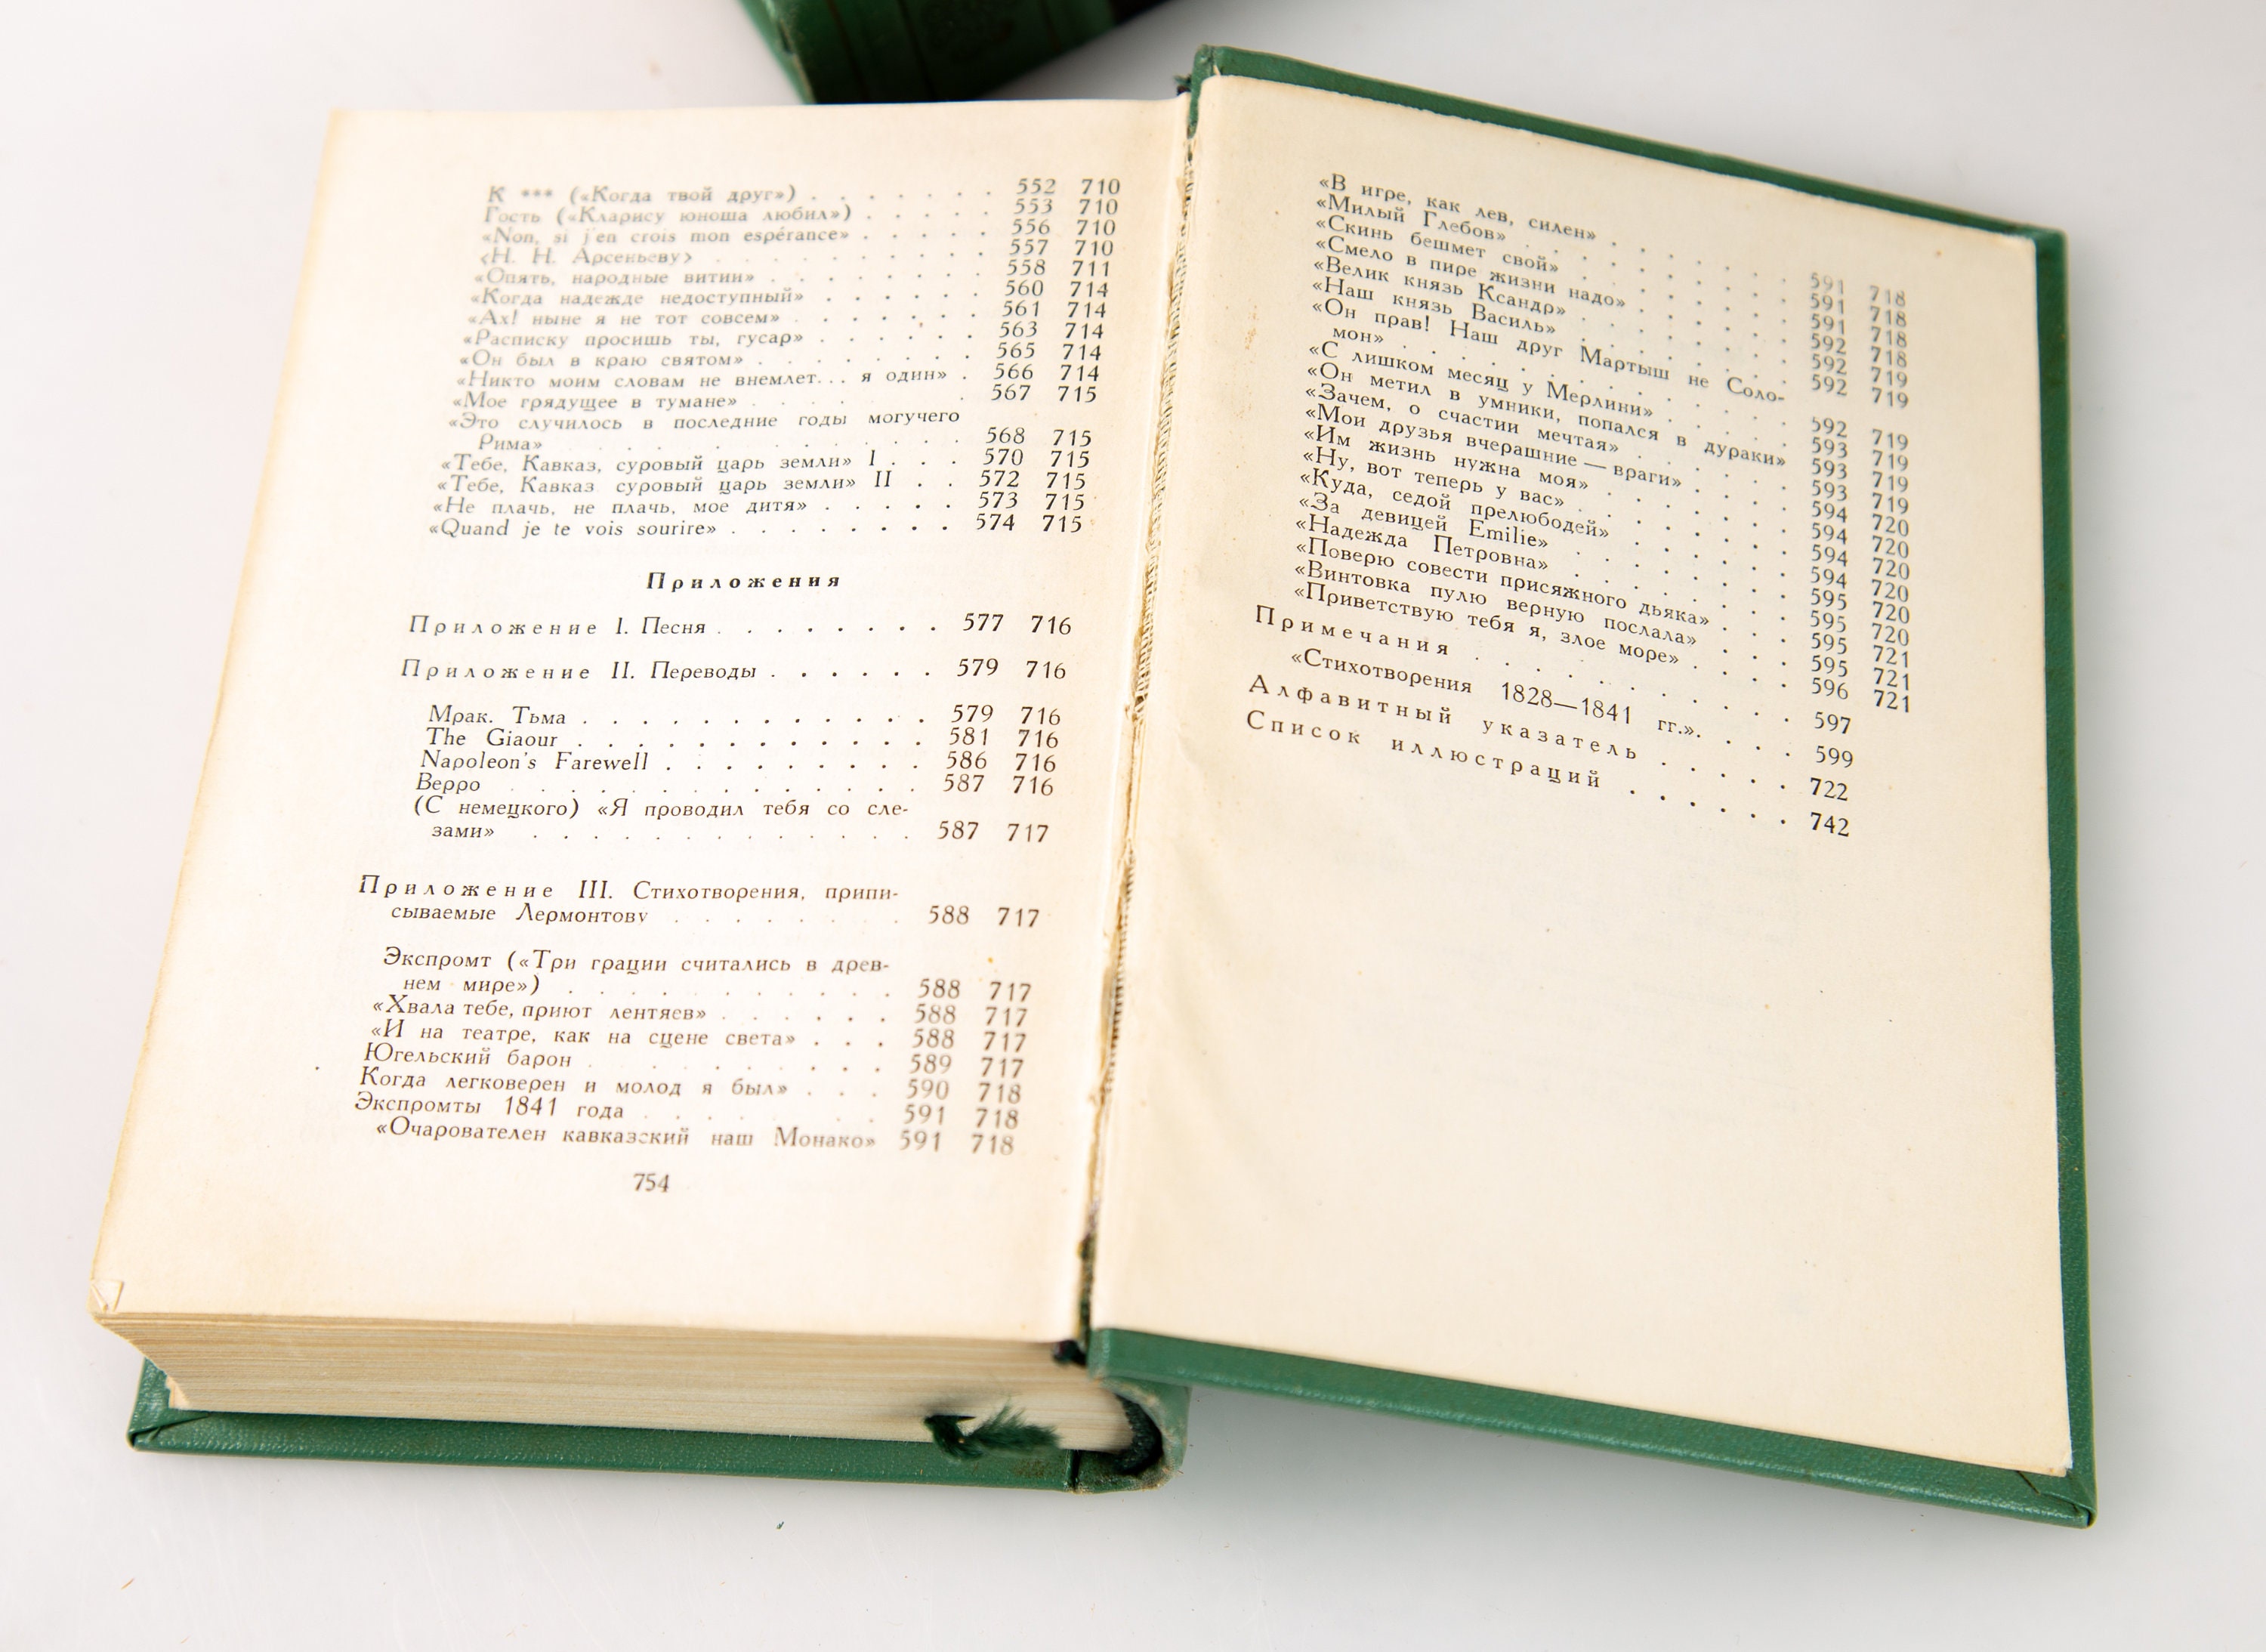 К *** («Когда твой друг») . . . . . . . 552 710
Гость («Кларису юноша любил») . . . . . 553 710
«Non, si j'en crois mon espérance» . . . . . 556 710
‹Н. Н. Арсеньеву› . . . . . . . . . 557 710
«Опять, народные витии» . . . . . . . 558 711
«Когда надежде недоступный» . . . . . . 560 714
«Ах! ныне я не тот совсем» . . . . . . . 561 714
«Расписку просишь ты, гусар» . . . . . . 563 714
«Он был в краю святом» . . . . . . . . 565 714
«Никто моим словам не внемлет... я один» . 566 714
«Мое грядущее в тумане» . . . . . . . 567 715
«Это случилось в последние годы могучего
Рима» . . . . . . . . . . . 568 715
«Тебе, Кавказ, суровый царь земли» I . . . 570 715
«Тебе, Кавказ суровый царь земли» II . . 572 715
«Не плачь, не плачь, мое дитя» . . . . . 573 715
«Quand je te vois sourire» . . . . . . . . 574 715
Приложения
Приложение I. Песня . . . . . . . . 577 716
Приложение II. Переводы . . . . . . 579 716
Мрак. Тьма . . . . . . . . . . . . 579 716
The Giaour . . . . . . . . . . . . 581 716
Napoleon's Farewell . . . . . . . . . 586 716
Верро . . . . . . . . . . . . . 587 716
(С немецкого) «Я проводил тебя со сле-
зами» . . . . . . . . . . . . . 587 717
Приложение III. Стихотворения, припи-
сываемые Лермонтову . . . . . . . . 588 717
Экспромт («Три грации считались в древ-
нем мире») . . . . . . . . . . . 588 717
«Хвала тебе, приют лентяев» . . . . . . 588 717
«И на театре, как на сцене света» . . . 588 717
Югельский барон . . . . . . . . . 589 717
Когда легковерен и молод я был» . . . 590 718
Экспромты 1841 года . . . . . . . . 591 718
«Очарователен кавказский наш Монако» 591 718
754
«В игре, как лев, силен» . . . . . . . 591 718
«Милый Глебов» . . . . . . . . . 591 718
«Скинь бешмет свой» . . . . . . . . 591 718
«Смело в пире жизни надо» . . . . . . 592 718
«Велик князь Ксандр» . . . . . . . . 592 719
«Наш князь Василь» . . . . . . . . 592 719
«Он прав! Наш друг Мартыш не Соло-
мон» . . . . . . . . . . . . 592 719
«С лишком месяц у Мерлини» . . . . . 593 719
«Он метил в умники, попался в дураки» 593 719
«Зачем, о счастии мечтая» . . . . . . 593 719
«Мои друзья вчерашние — враги» . . . . 594 720
«Им жизнь нужна моя» . . . . . . . 594 720
«Ну, вот теперь у вас» . . . . . . . . 594 720
«Куда, седой прелюбодей» . . . . . . 594 720
«За девицей Emilie» . . . . . . . . 595 720
«Надежда Петровна» . . . . . . . . 595 720
«Поверю совести присяжного дьяка» . . . 595 721
«Винтовка пулю верную послала» . . . 595 721
«Приветствую тебя я, злое море» . . . . 596 721
Примечания . . . . . . . . . . . 597
«Стихотворения 1828—1841 гг.». . . . 599
Алфавитный указатель . . . . . 722
Список иллюстраций . . . . . . 742